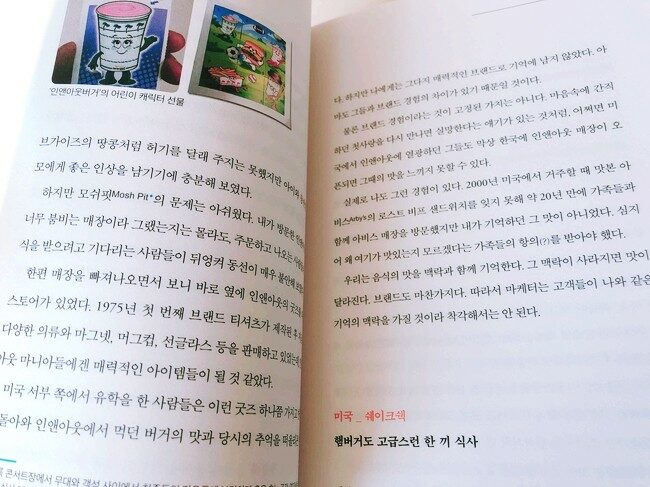 인앤아웃버거'의 어린이 캐릭터 선물
브가이즈의 땅콩처럼 허기를 달래 주지는 못했지만 아이와
모에게 좋은 인상을 남기기에 충분해 보였다.
하지만 모쉬핏Mosh Pit*의 문제는 아쉬웠다. 내가 방문한
너무 붐비는 매장이라 그랬는지는 몰라도, 주문하고 나오는
식을 받으려고 기다리는 사람들이 뒤엉켜 동선이 매우 불안해
한편 매장을 빠져나오면서 보니 바로 옆에 인앤아웃의 굿즈
스토어가 있었다. 1975년 첫 번째 브랜드 티셔츠가 제작된 후
다양한 의류와 마그넷, 머그컵, 선글라스 등을 판매하고 있었는데
아웃 마니아들에겐 매력적인 아이템들이 될 것 같았다.
미국 서부 쪽에서 유학을 한 사람들은 이런 굿즈 하나쯤 가지고
돌아와 인앤아웃에서 먹던 버거의 맛과 당시의 추억을 떠올린
콘서트장에서 무대와 객석 사이에서
다. 하지만 나에게는 그다지 매력적인 브랜드로 기억에 남지 않았다. 아
마도 그들과 브랜드 경험의 차이가 있기 때문일 것이다.
물론 브랜드 경험이라는 것이 고정된 가치는 아니다. 마음속에 간직
하던 첫사랑을 다시 만나면 실망한다는 얘기가 있는 것처럼, 어쩌면 미
국에서 인앤아웃에 열광하던 그들도 막상 한국에 인앤아웃 매장이 오
픈되면 그때의 맛을 느끼지 못할 수 있다.
실제로 나도 그런 경험이 있다. 2000년 미국에서 거주할 때 맛본 아
비스Arby's의 로스트 비프 샌드위치를 잊지 못해 약 20년 만에 가족들과
함께 아비스 매장을 방문했지만 내가 기억하던 그 맛이 아니었다. 심지
어 왜 여기가 맛있는지 모르겠다는 가족들의 항의(?)를 받아야 했다.
우리는 음식의 맛을 맥락과 함께 기억한다. 그 맥락이 사라지면 맛이
달라진다. 브랜드도 마찬가지다. 따라서 마케터는 고객들이 나와 같은
기억의 맥락을 가질 것이라 착각해서는 안 된다.
미국 _ 쉐이크쉑
햄버거도 고급스런 한 끼 식사